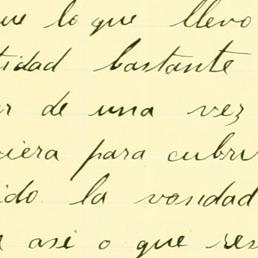 ue lo que llevo
tidad bastante
r de una vez
iera para cubri
ido la vondad
así o que res